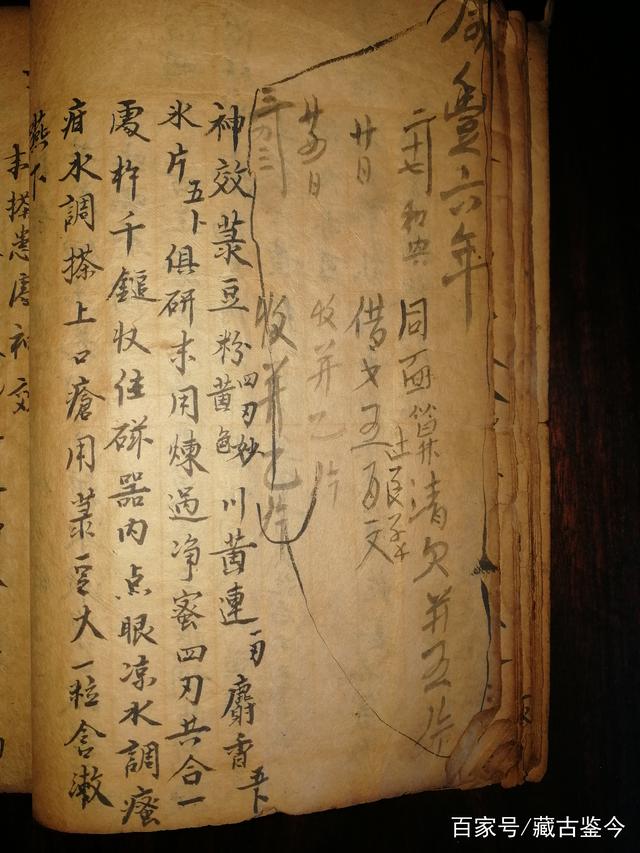 咸豐六年
同面筭清欠并五片
廿日 借才五百文
廿四日 收并乙片
三月三 收并乙片
神效菉豆粉四刃黄色妙川黄連一刃麝香五卜
氷片五卜俱研末用煉過净蜜四刃共合一
處杵千鎚收住磁器内点眼凉水調瘙
疳水調搽上口瘡用菉豆大一粒含漱
嚥下
末搽患處神效
百家号/藏古鉴今